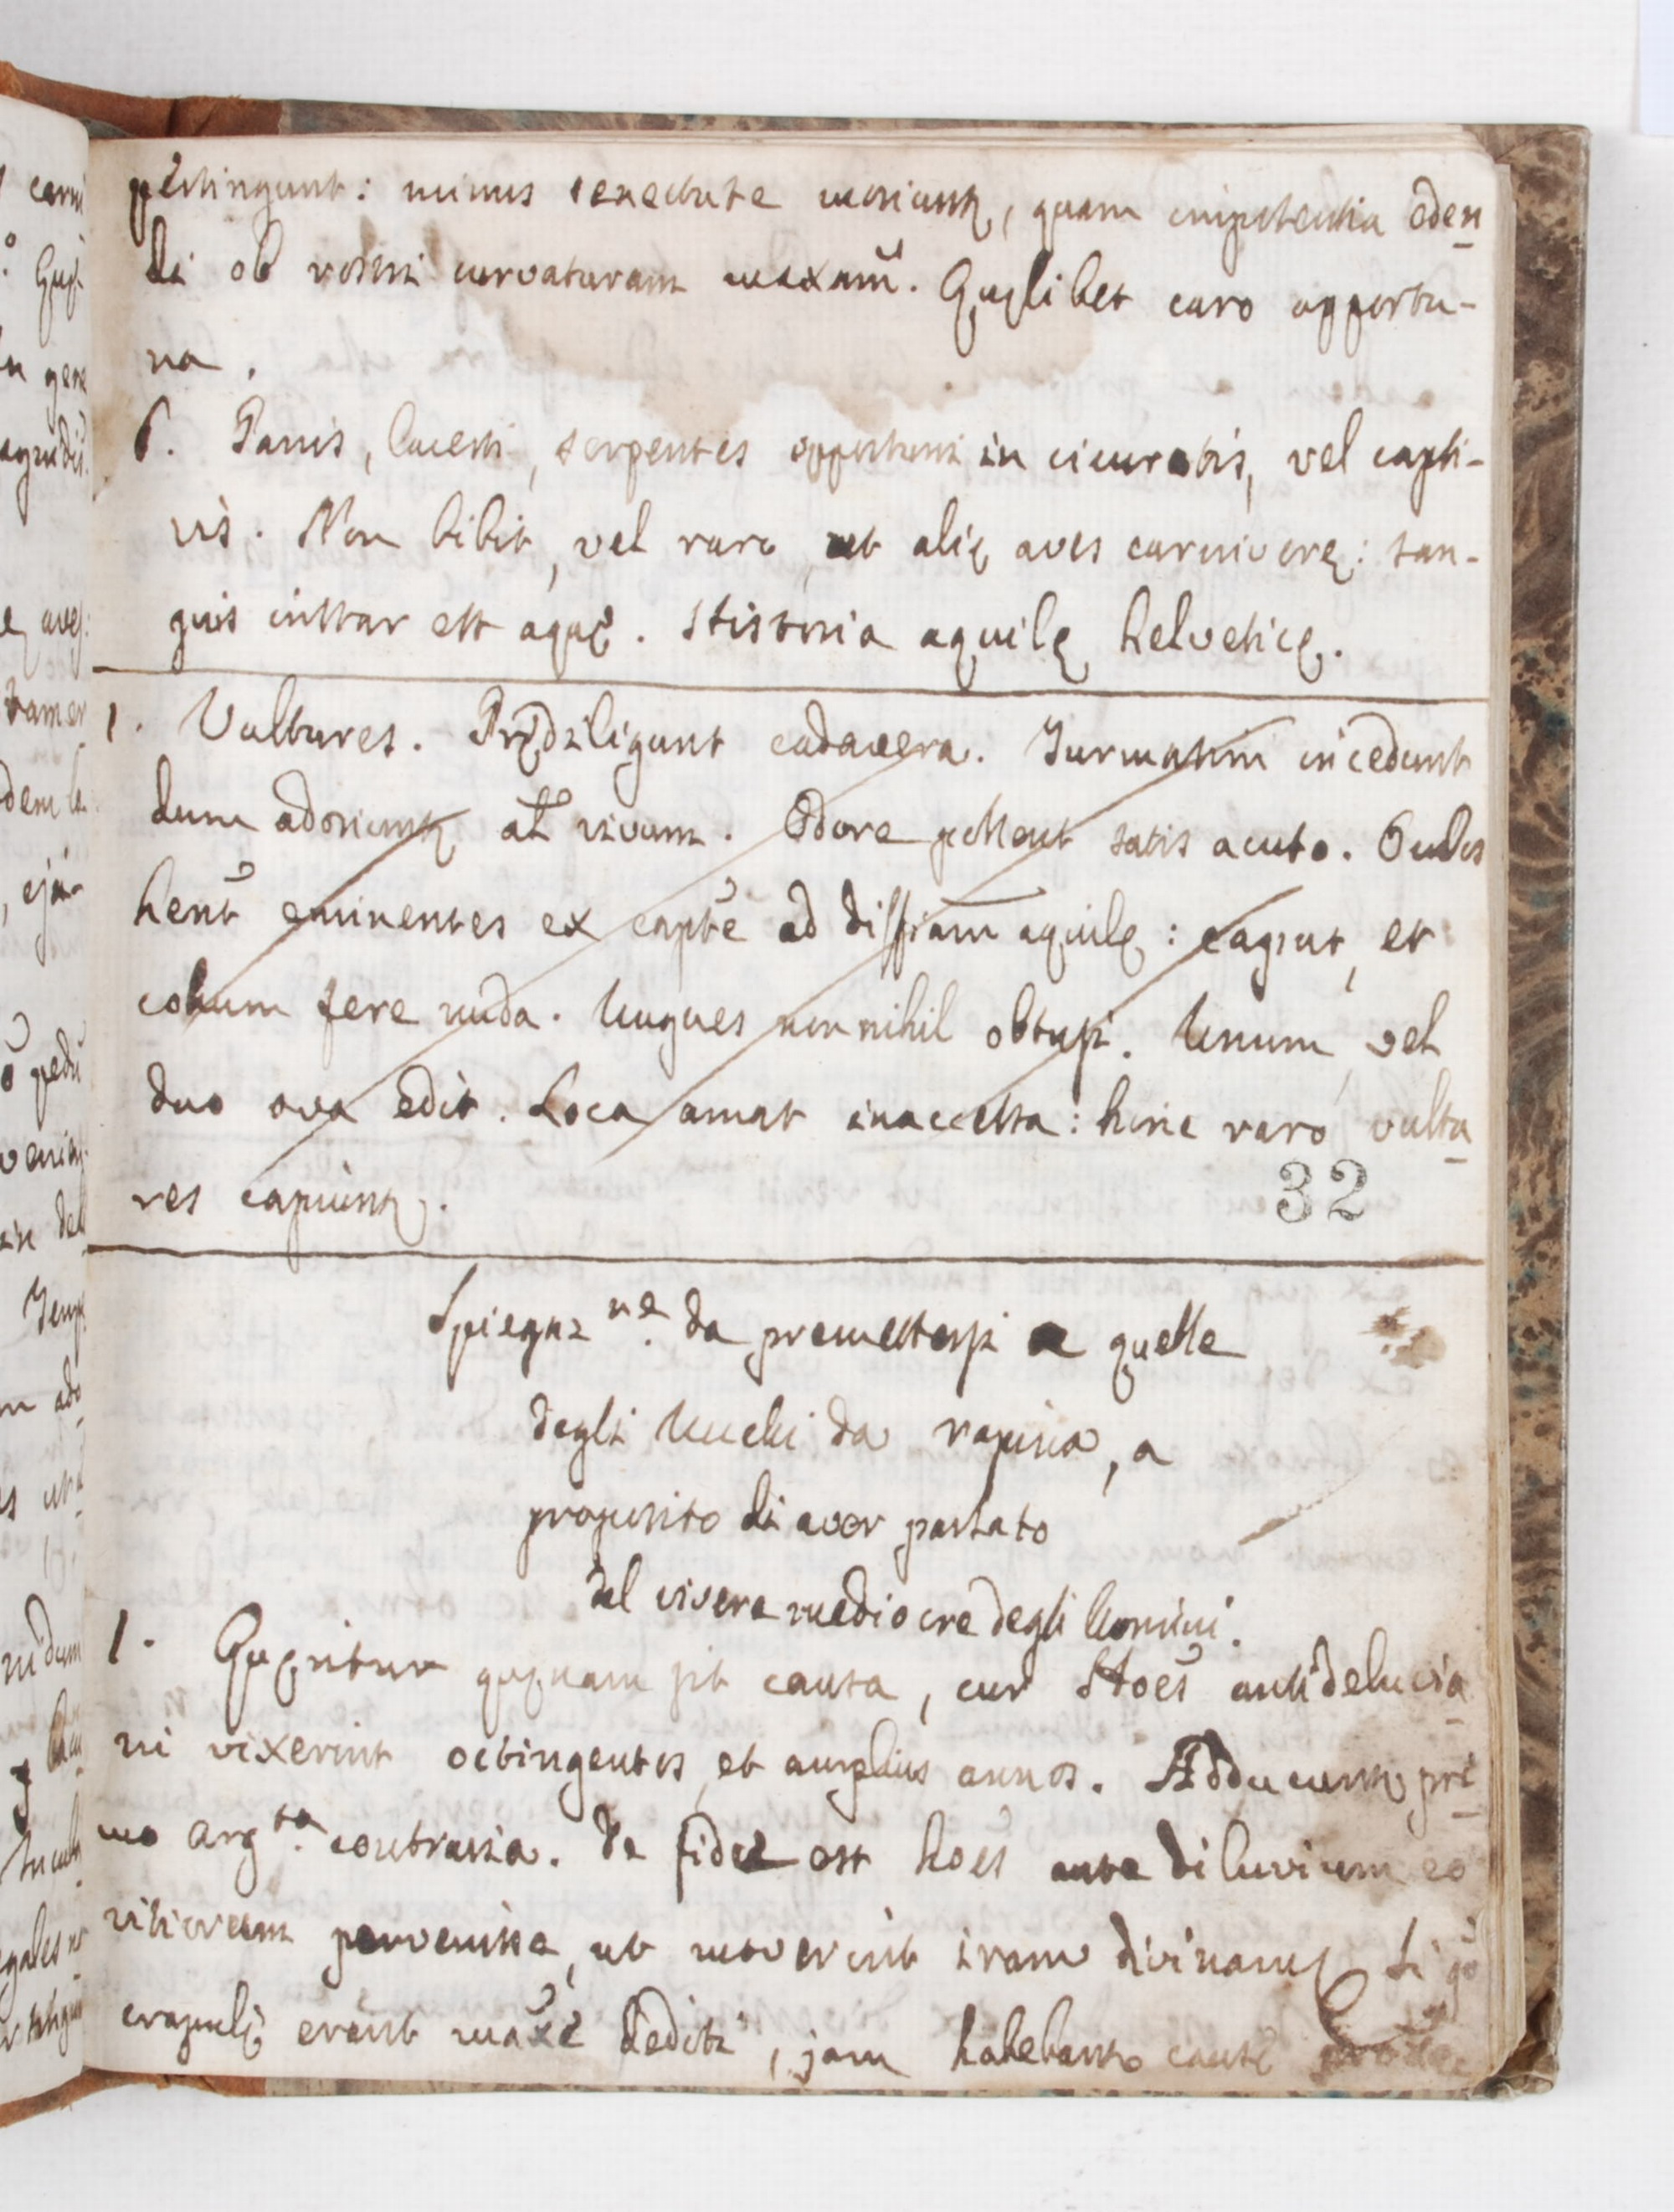 pertingunt: minus senectute moriunt, quam impotentia eden
di ob rostri curvaturam maxam̃. Quęlibet caro opportu-
na.
6. Panis, lacerti, serpentes opportuni in cicuratis, vel capti-
vis. Non bibit, vel raro, ut alię aves carnivorę: san-
guis instar est aquę. Historia aquilę helveticę.
1. Vultures. Prędiligunt cadavera. Turmatim incedunt
dum adoriunt al̃ vivum. Odore pollent satis acuto. Oculos
hent̃ eminentes ex capte ad diffiam̃ aquilę: caput, et
collum fere nuda. Ungues nonnihil obtusi. Unum, vel
duo ova edit. Loca amat inaccessa: hinc raro vultu
res capiunt.
32
Spiegaz.ne da premettersi a quelle
degli Uccelli da rapina, a
proposito di aver parlato
del vivere mediocre degli Uomini.
1. Quęritur quęnam sit causa, cur Hoẽs antidiluvia
ni vixerint octingentos, et amplius annos. Adducunt pri
mo arg.ta contraria. De fide est hoẽs ante diluvium eo
vitiorum pervenisse, ut moverint iram divinam. Si gõ
crapulę erant maxe dediti, jam habebant causę